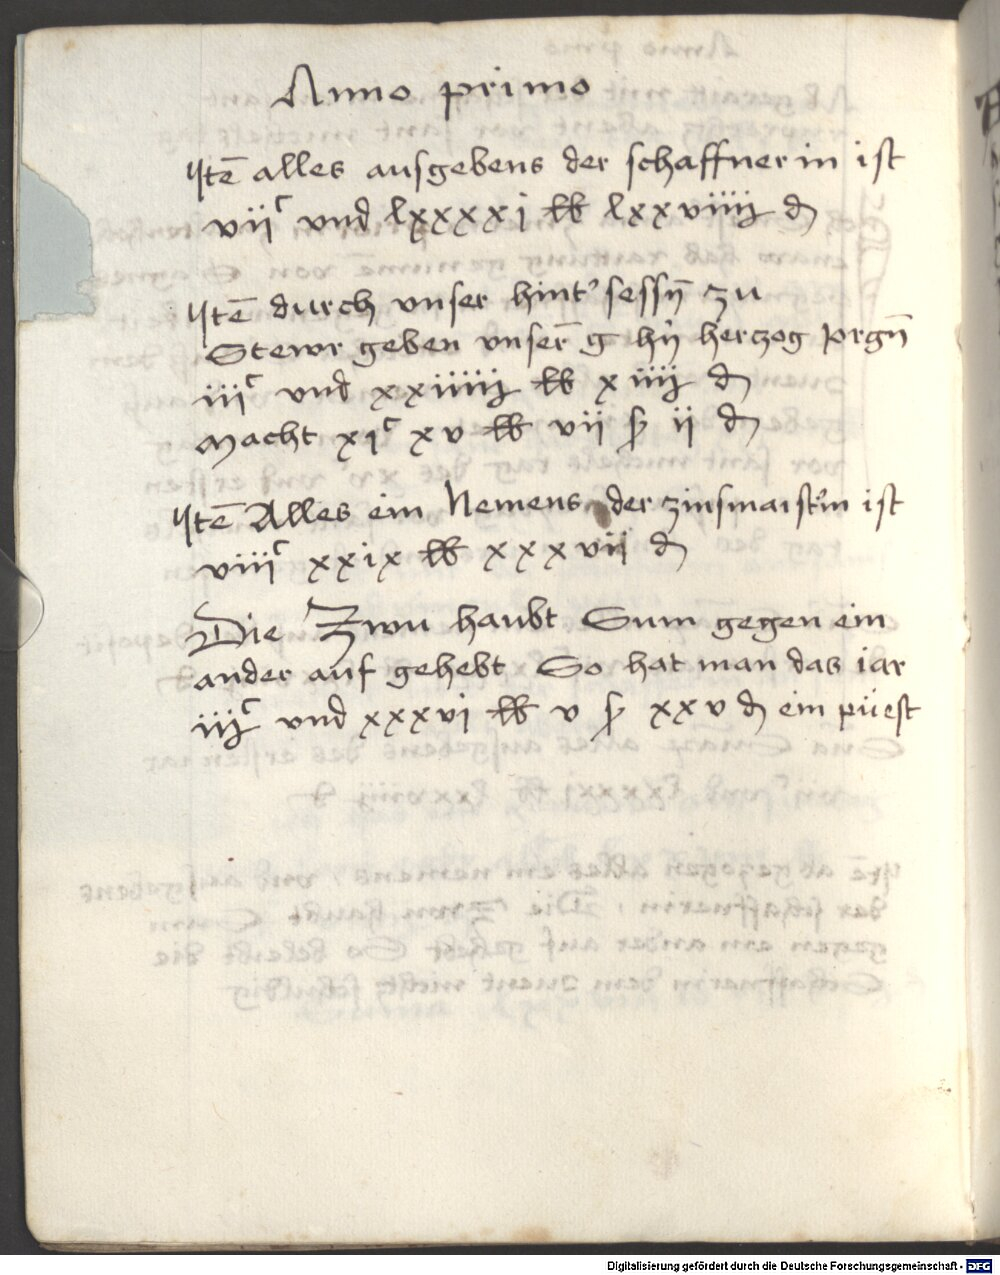 Anno primo
Itē alles ausgebens der schaffnerin ist
viiᶜ und lxxxxi ℔ lxxviiij ₰
Itē durch vnser hint' sessn̄ zu
Stewr geben vnser̄ g hn̄ herzog Jorgn̄
iiiᶜ und xxiiiij ℔ xiiij ₰
Macht xiᶜ xv ℔ vii ß ij ₰
Itē Alles ein Nemens der zinsmaist'in ist
viiiᶜ xxix ℔ xxxvii ₰
Die Zwu haubt Sum gegen ein
ander auf gehebt So hat man das iar
iiijᶜ und xxxvi ℔ v ß xxv ₰ ein püest
Digitalisierung gefördert durch die Deutsche Forschungsgemeinschaft - DFG